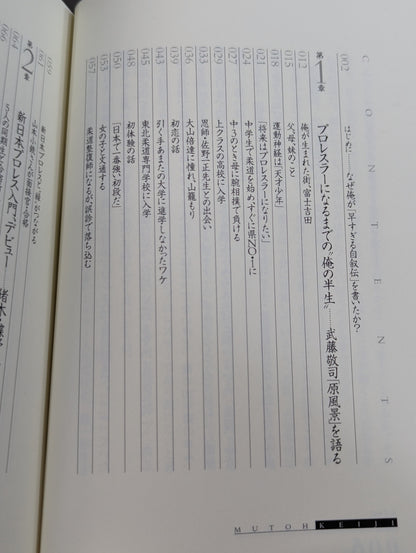 CONTENTS
002 はじめに なぜ俺が「早すぎる自叙伝」を書いたか?
第1章 プロレスラーになるまでの“俺の半生”……武藤敬司「原風景」を語る
012 俺が生まれた街、富士吉田
015 父、母、妹のこと
018 運動神経は「天才少年」
021 「将来はプロレスラーになりたい」
024 中学生で柔道を始め、すぐに県NO・1に
027 中3のとき母に腕相撲で負ける
029 上クラスの高校に入学
031 恩師・佐野正先生との出会い
036 大山倍達に憧れ、山籠もり
039 初恋の話
043 引く手あまたの大学に進学しなかったワケ
045 東北柔道専門学校に入学
048 初体験の話
050 「日本で一番強い初段だ」
053 女の子と文通する
057 柔道整復師になるが、誤診で落ち込む
第2章 新日本プロレス入門、デビュー
059
061
064
066
MUTOH KEIJI